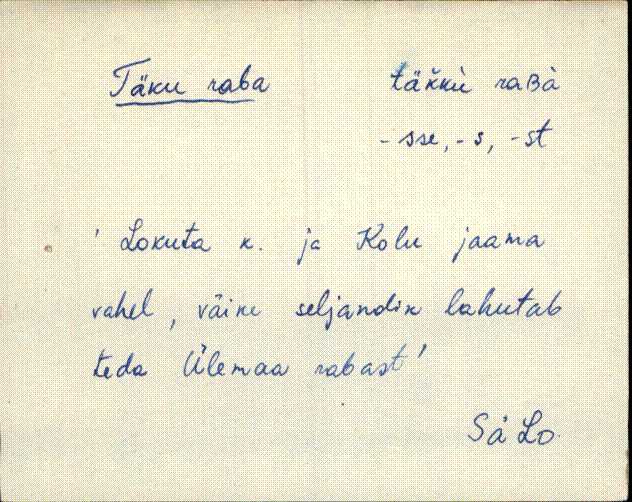 Täku raba täk̆kù raʙà
-sse, -s, -st
' Lokuta k. ja Kolu jaama
vahel, väike seljandik lahutab
teda Ülemaa rabast'
SäLo